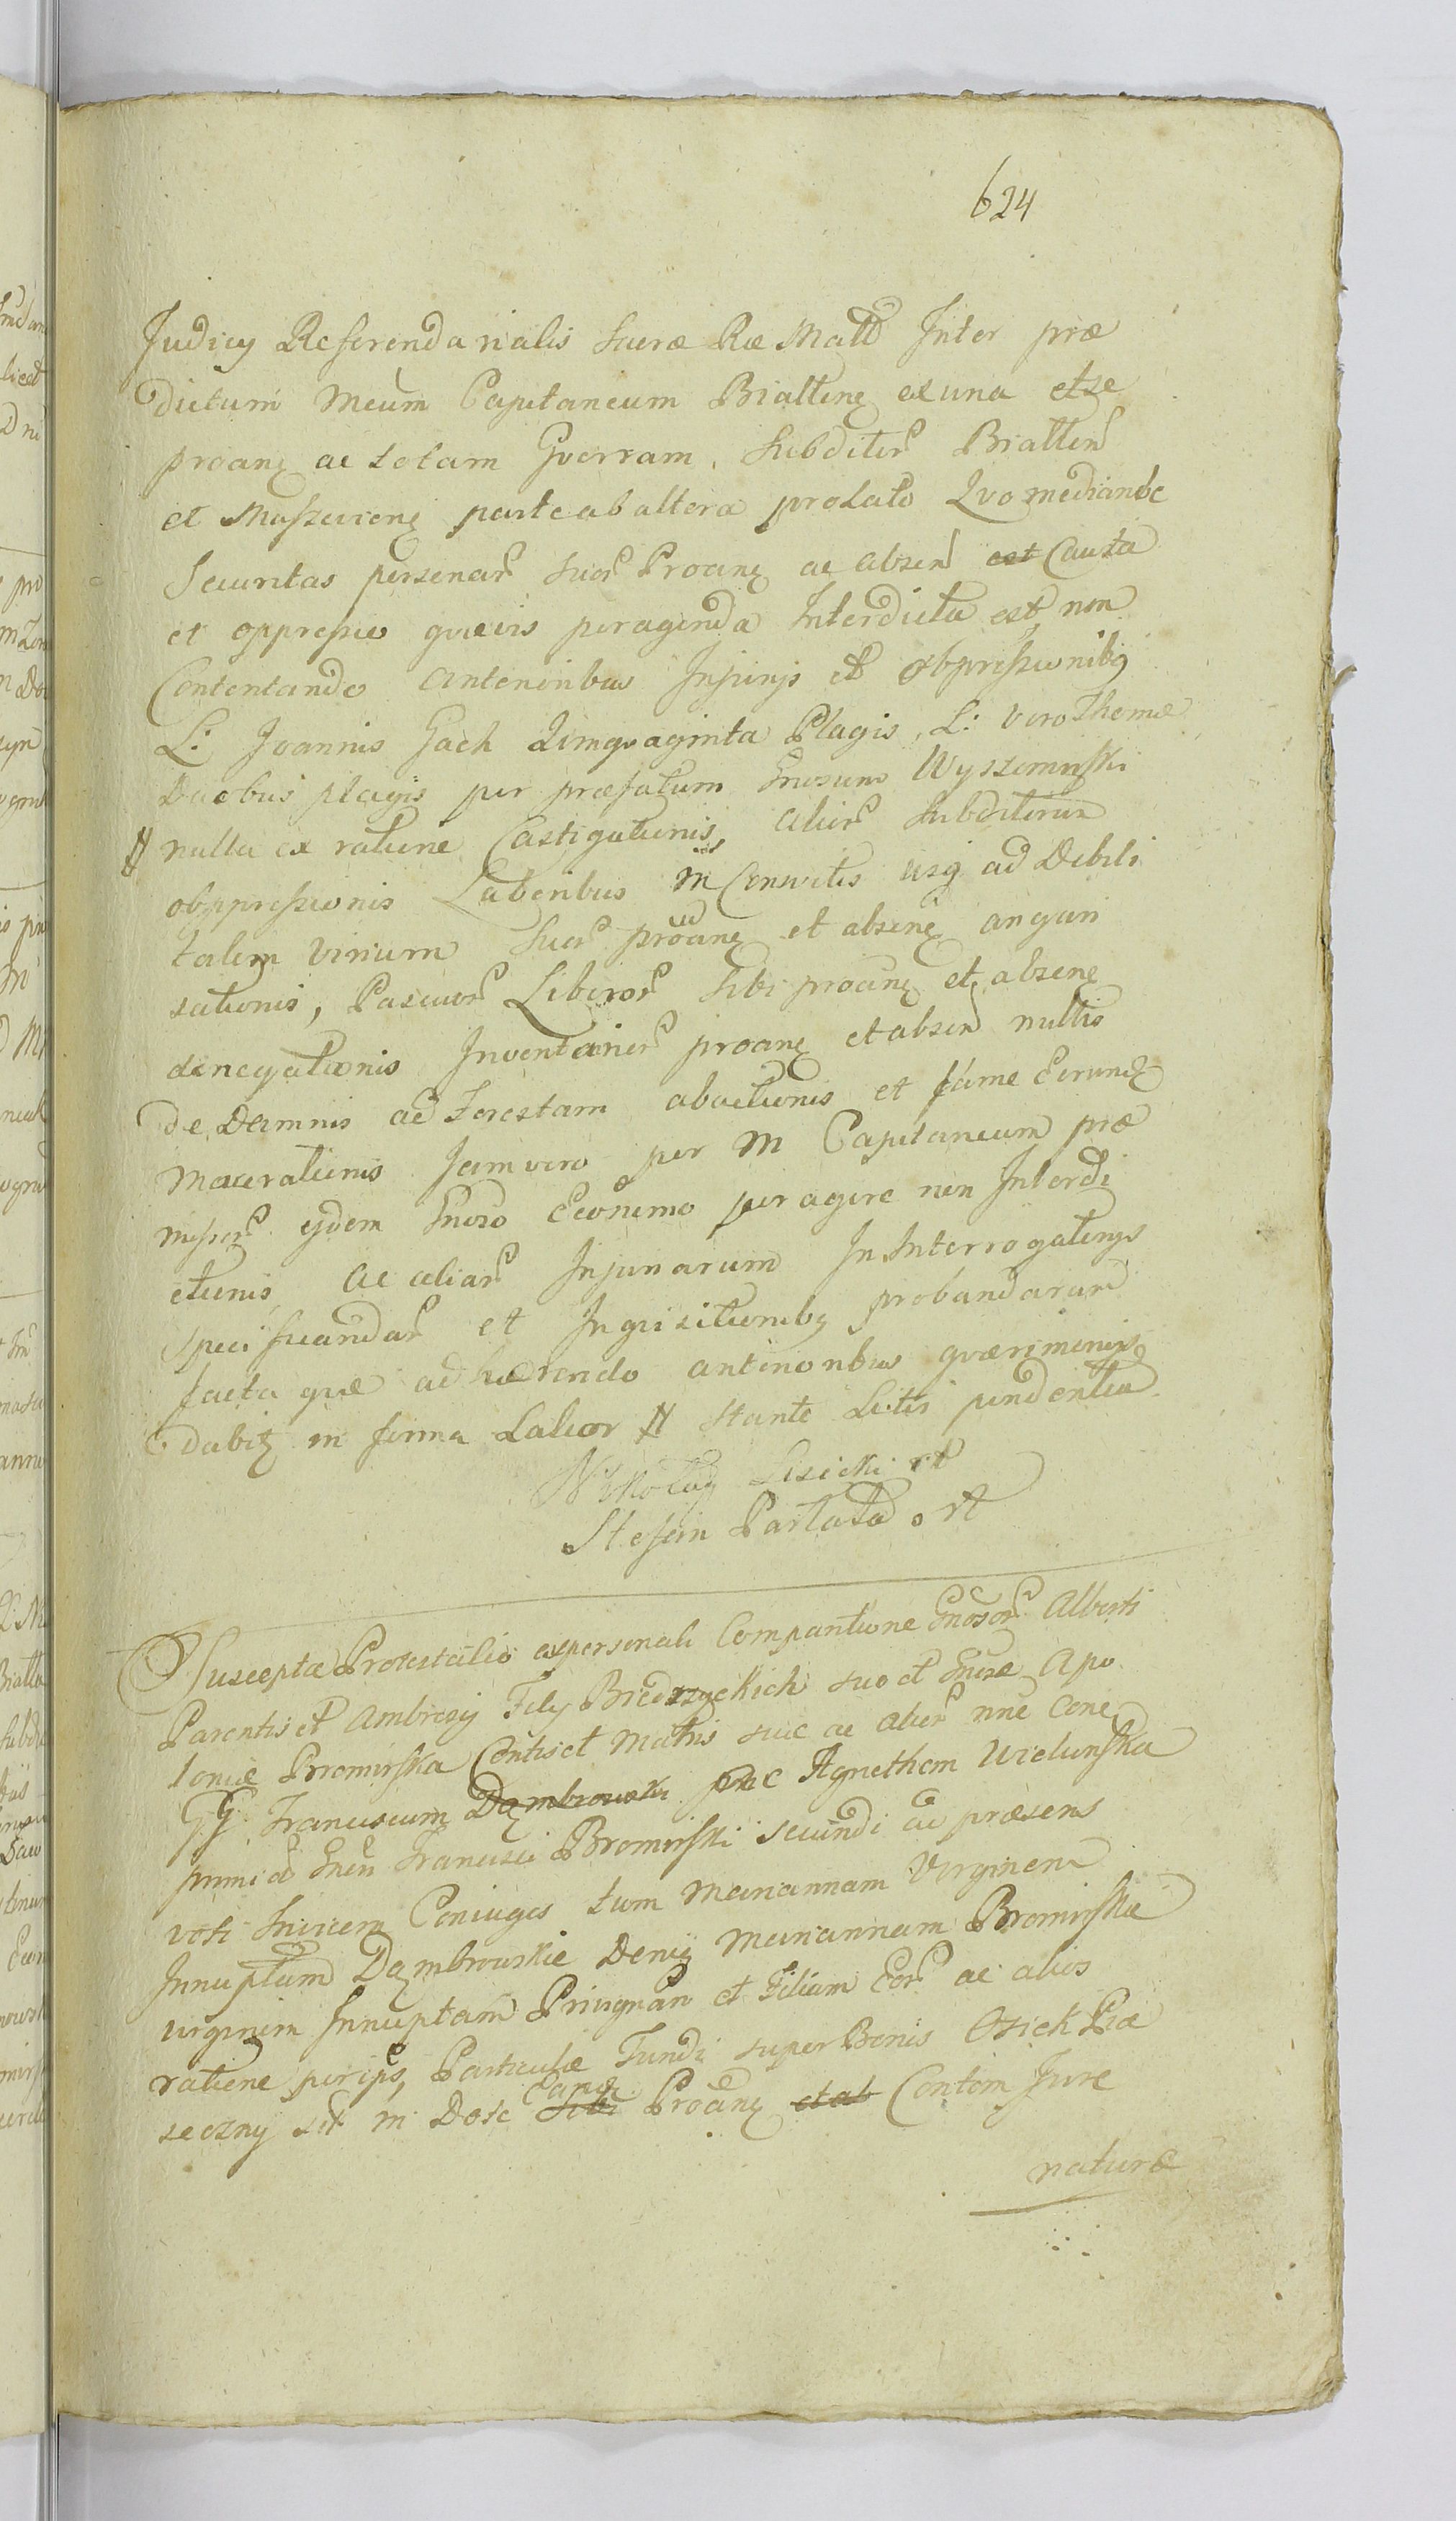 624
Judicy Referendarialis Sacræ Ræ Mattis Inter præ
dictum Meum Capitaneum Biallens ex una et se
proans ac totam Gverram Subditor Biallen
et Maszewiens parte ab altera prolato Qvo mediante
Securitas personar suor Proans ac absen est Cauta
et oppressio quævis peragenda Interdicta est non
Contentando anterioribus Injurys et obpressionibq
L: Joannis Gach Qinqvaginta Plagis, L: vero Thomæ
Duobus plagis per præfatum Gnosum Wyszomirski
# nulla ex ratione Castigationis, alior Subditorum
obppressionis Laboribus in Consvetis usq ad Debili
tatem virium suor proans et absens angari
sationis, Pascuor Liberor sibi proans et absens
denegationis Inventarior proans et absen nullis
de Damnis ad Forestam abactionis et fame Eorund
macerationis Jam vero per M Capitaneum præ
missor ejdem Gnoso Œconomo peragere non Interdi
ctionis ac aliar Injuriarum In Interrogatorys
specificandar et Inquisitionibq probandarum
facta quæ adhærendo anterioribus qværimonys
dabit in forma Latior # stante Litis pendentia
Mikołay Lisicki rt
Stefan Partata o rt
Suscepta Protestatio ex personali Comparitione Gnosor Alberti
Parentis et Ambrosy Fily Biedrzyckich suo et Gnosæ Apo
loniæ Bromirska Contis et Matris suæ ac alior nne Cone
GG Franciscum Dąmbrowski prae Agnethem Wielunska
primi ad Gnen Francisci Bromirski secundi ac præsens
voti Invicem Coniuges tum Mariannam Virginem
Innuptam Dąmbrowskie Deniq Mariannam Bromirska
virginem Innuptam Privignam et Filiam Eor ac alios
ratione perips Particulæ Fundi super Bonis Osiek Piæ
seczny sit in Dose Eand sibi Proans et ab Contem Jure
naturæ